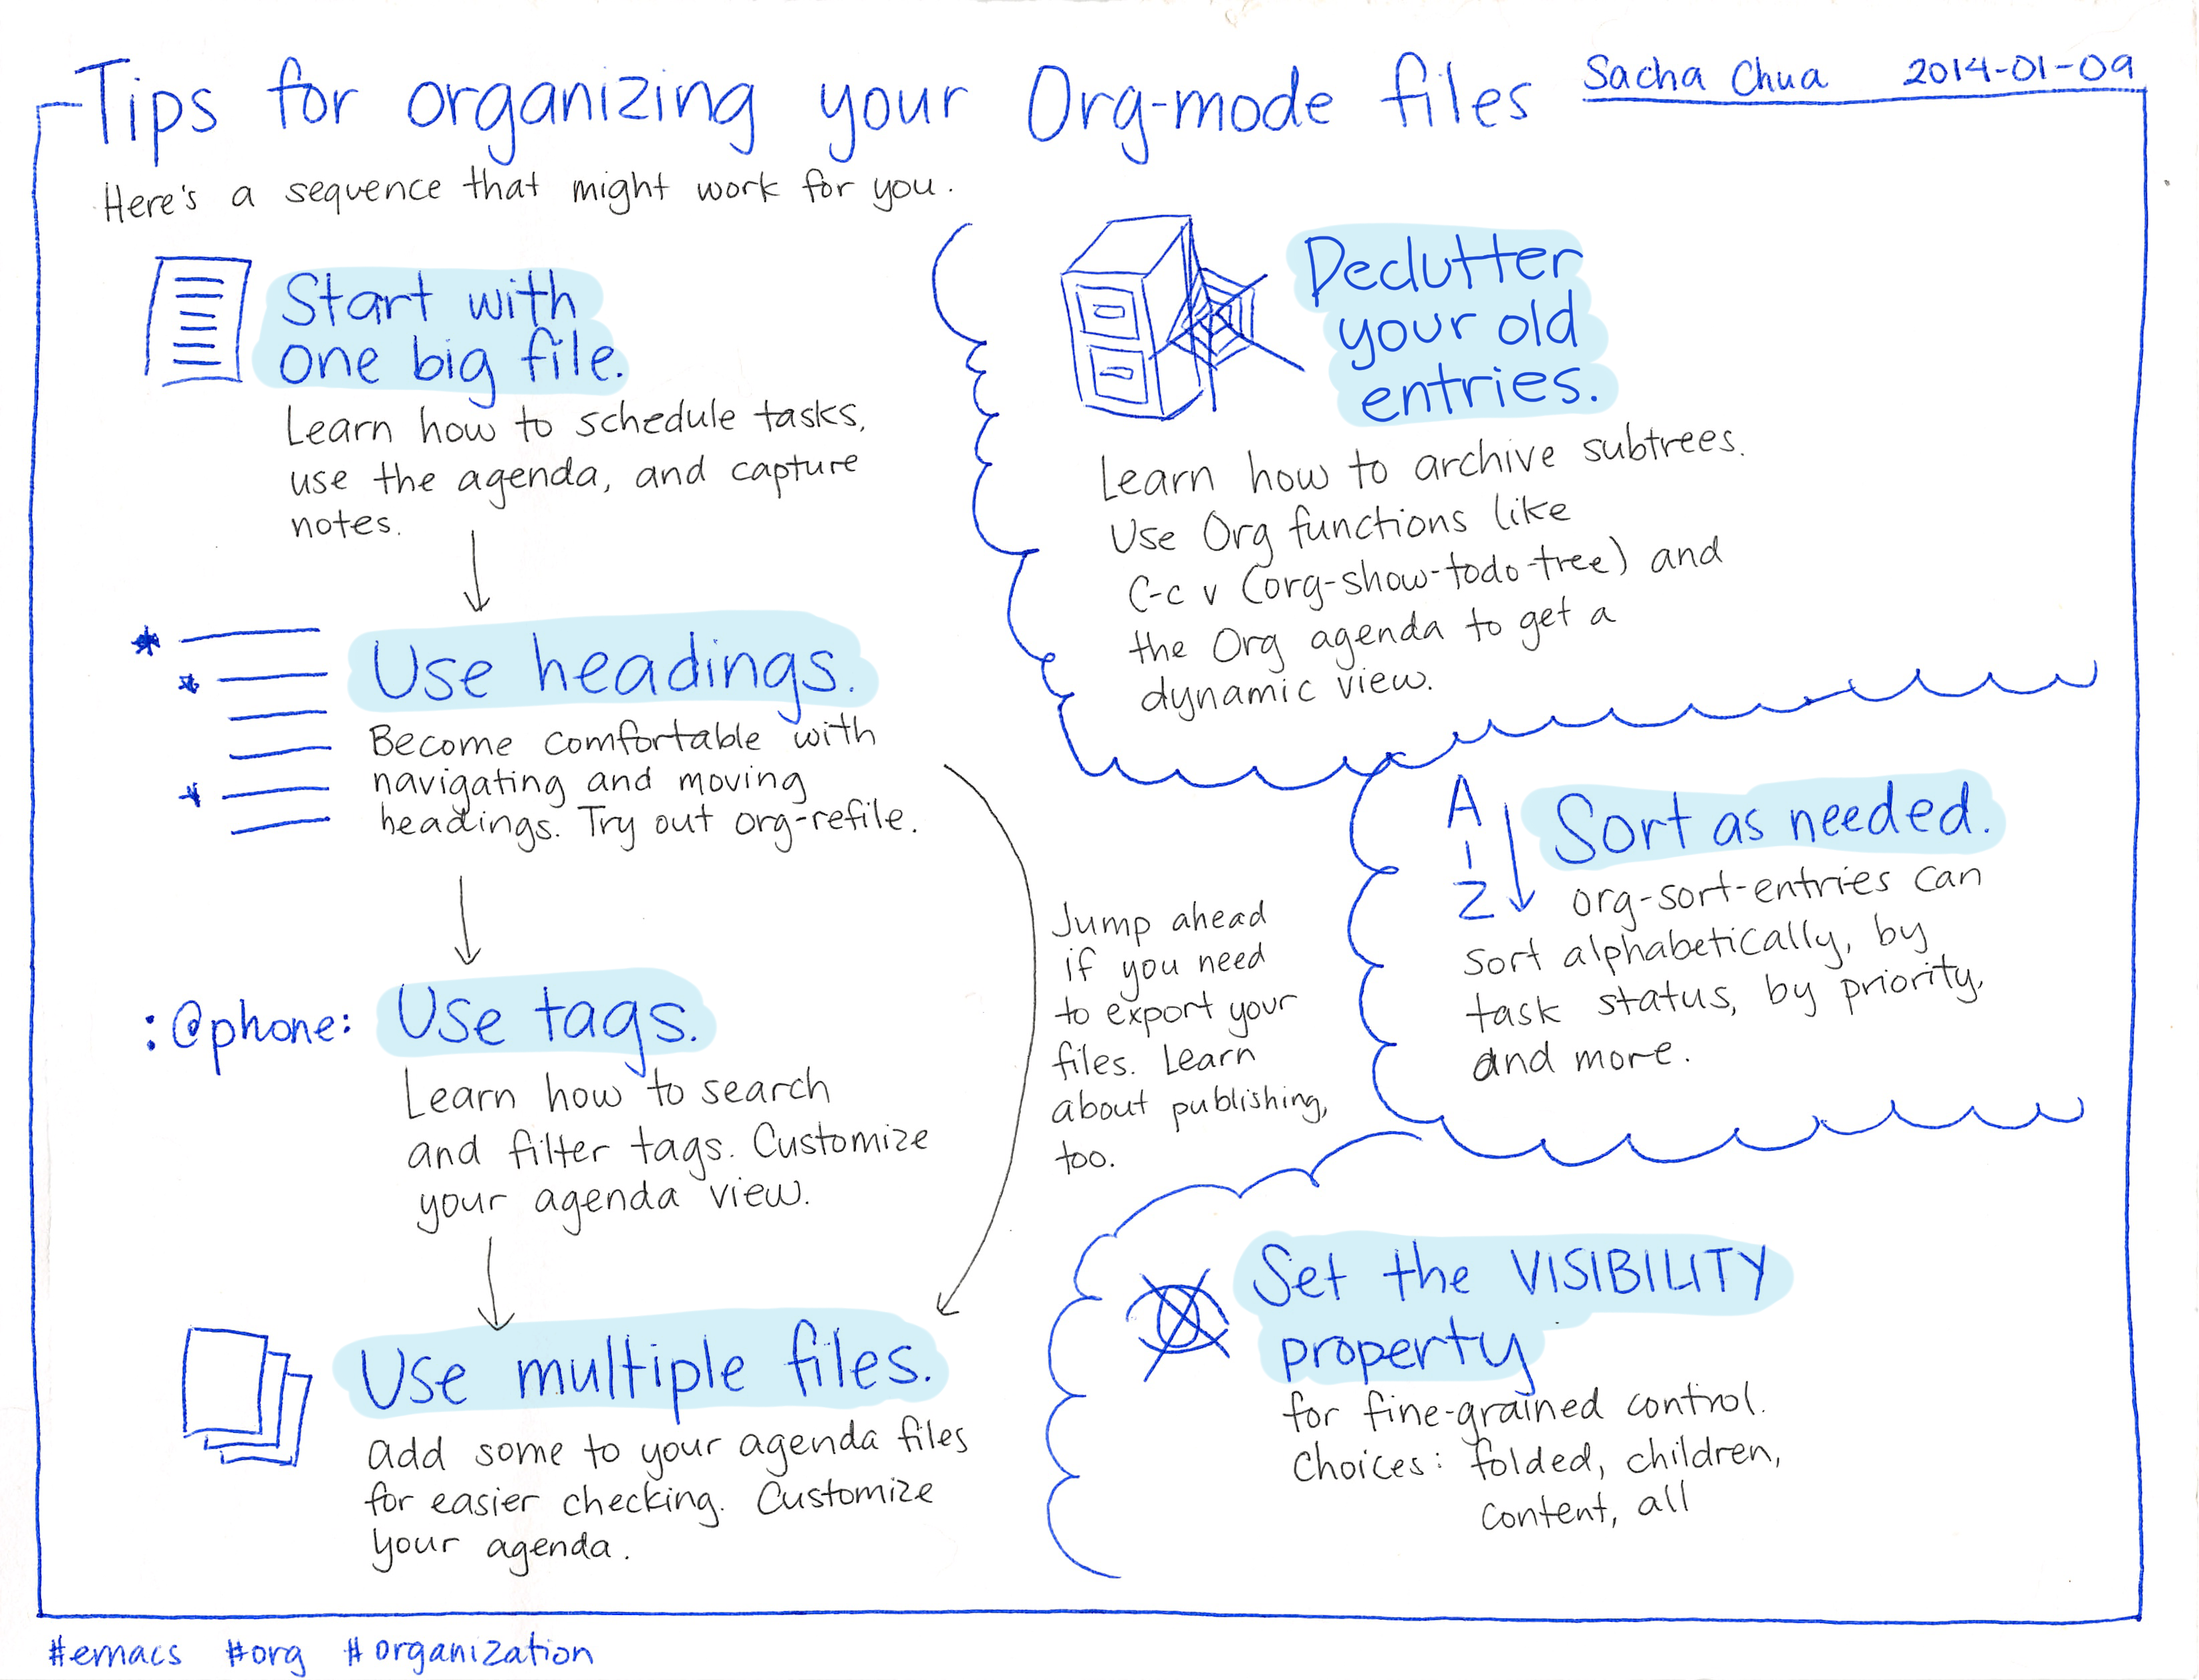 Tips for organizing your Org-mode files
Sacha Chua 2014-01-09
Here's a sequence that might work for you.
Start with
one big file.
Learn how to schedule tasks,
use the agenda, and capture
notes.
Use headings.
Become comfortable with
navigating and moving
headings. Try out org-refile.
Jump ahead
if you need
to export your
files. Learn
about publishing,
too.
:@phone: Use tags.
Learn how to search
and filter tags. Customize
your agenda view.
Use multiple files.
Add some to your agenda files
for easier checking. Customize
your agenda.
Declutter
your old
entries.
Learn how to archive subtrees.
Use Org functions like
C-c v (org-show-todo-tree) and
the Org agenda to get a
dynamic view.
A
-
Z
Sort as needed.
org-sort-entries can
sort alphabetically, by
task status, by priority,
and more.
Set the VISIBILITY
property
for fine-grained control.
Choices: folded, children,
content, all
#emacs #org #organization